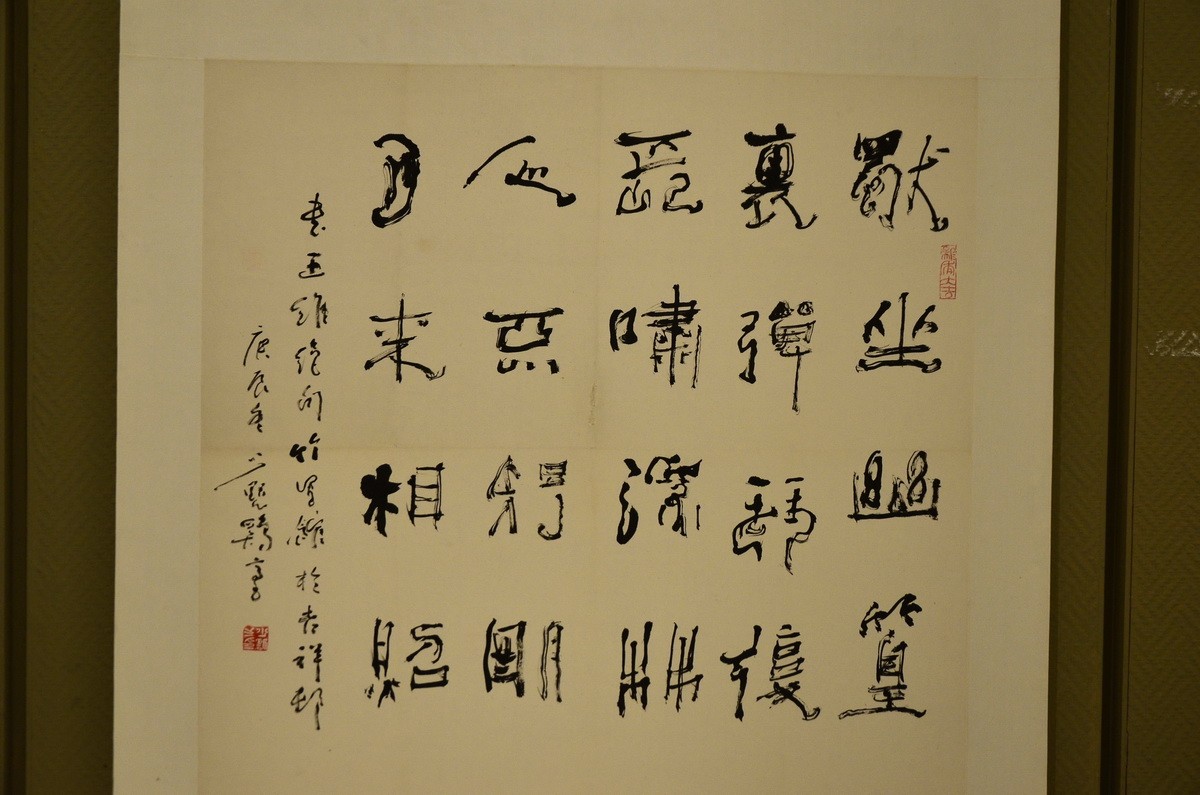 獨坐幽篁
裏彈琴復
長嘯深林
人不知明
月來相照
書王維絕句竹里館於吉祥邨
庚辰冬